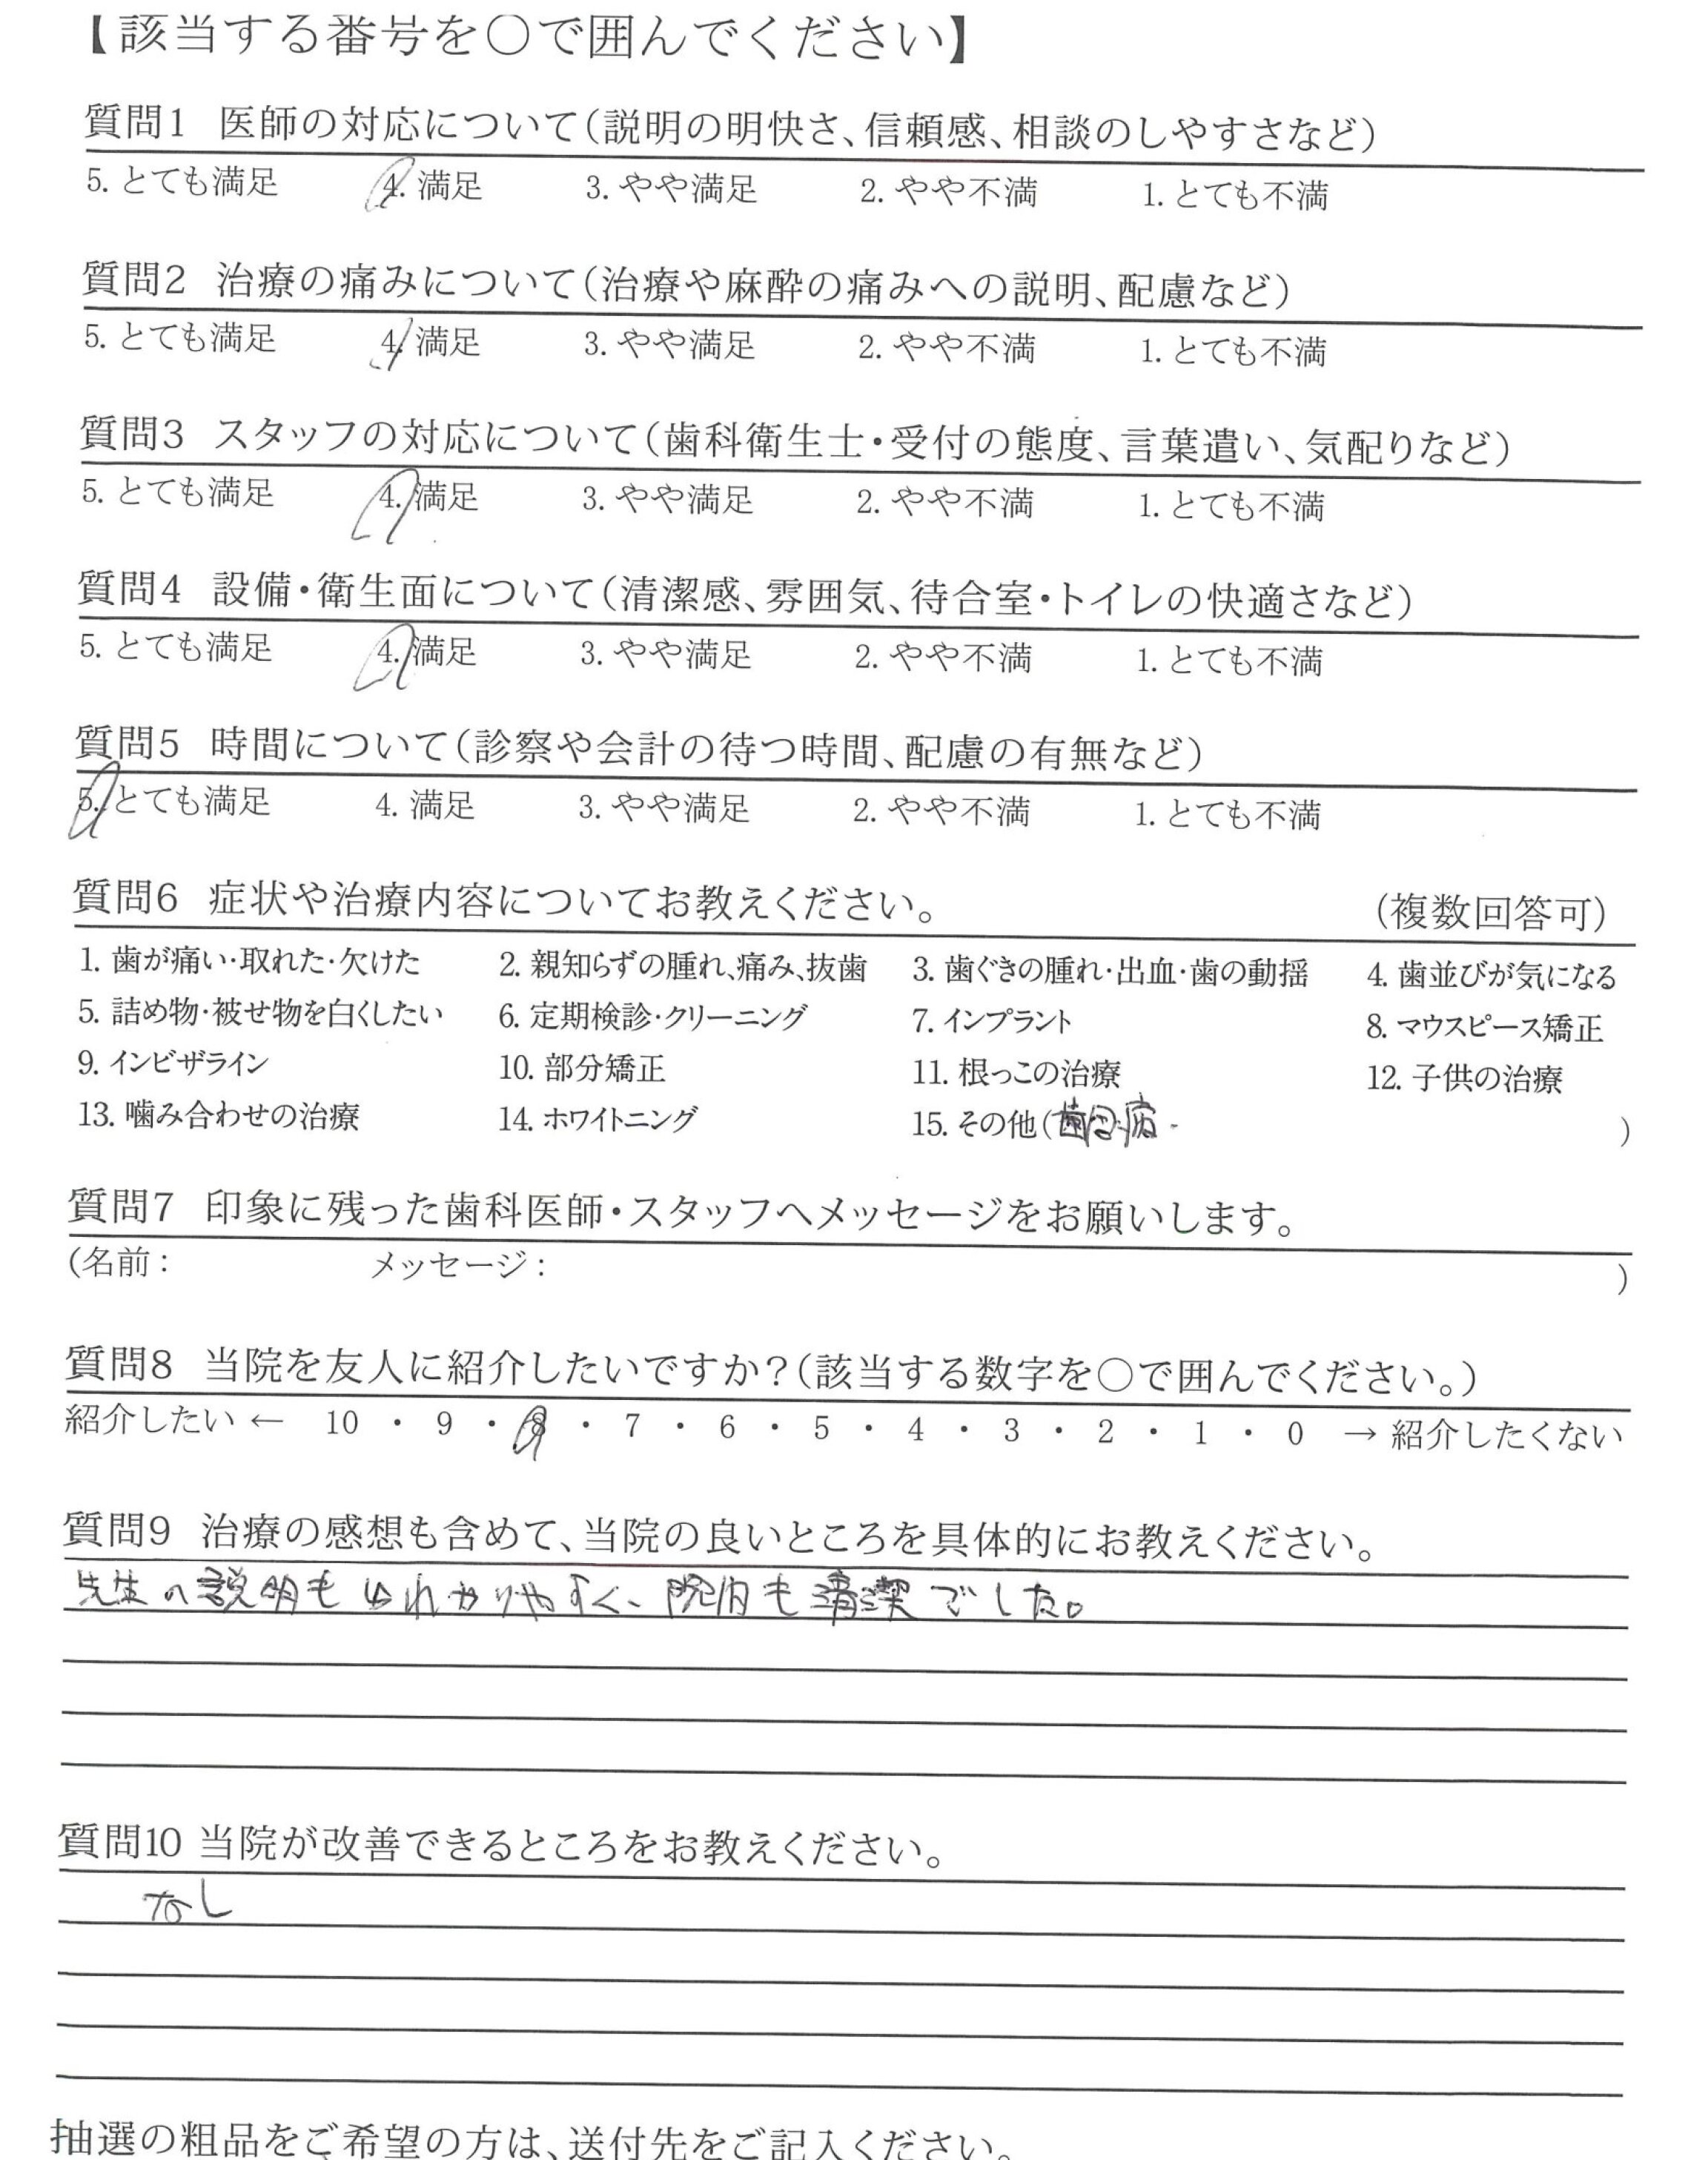 【該当する番号を〇で囲んでください】
質問1 医師の対応について(説明の明快さ、信頼感、相談のしやすさなど)
5. とても満足 4. 満足 3. やや満足 2. やや不満 1. とても不満
質問2 治療の痛みについて(治療や麻酔の痛みへの説明、配慮など)
5. とても満足 4. 満足 3. やや満足 2. やや不満 1. とても不満
質問3 スタッフの対応について(歯科衛生士・受付の態度、言葉遣い、気配りなど)
5. とても満足 4. 満足 3. やや満足 2. やや不満 1. とても不満
質問4 設備・衛生面について(清潔感、雰囲気、待合室・トイレの快適さなど)
5. とても満足 4. 満足 3. やや満足 2. やや不満 1. とても不満
質問5 時間について(診察や会計の待つ時間、配慮の有無など)
5. とても満足 4. 満足 3. やや満足 2. やや不満 1. とても不満
質問6 症状や治療内容についてお教えください。 (複数回答可)
1. 歯が痛い・取れた・欠けた 2. 親知らずの腫れ、痛み、抜歯 3. 歯ぐきの腫れ・出血・歯の動揺 4. 歯並びが気になる
5. 詰め物・被せ物を白くしたい 6. 定期検診・クリーニング 7. インプラント 8. マウスピース矯正
9. インビザライン 10. 部分矯正 11. 根っこの治療 12. 子供の治療
13. 噛み合わせの治療 14. ホワイトニング 15. その他(歯周病 )
質問7 印象に残った歯科医師・スタッフへメッセージをお願いします。
(名前: メッセージ: )
質問8 当院を友人に紹介したいですか?(該当する数字を〇で囲んでください。)
紹介したい ← 10 ・ 9 ・ 8 ・ 7 ・ 6 ・ 5 ・ 4 ・ 3 ・ 2 ・ 1 ・ 0 → 紹介したくない
質問9 治療の感想も含めて、当院の良いところを具体的にお教えください。
先生の説明もわかりやすく、院内も清潔でした。
質問10 当院が改善できるところをお教えください。
なし
抽選の粗品をご希望の方は、送付先をご記入ください。